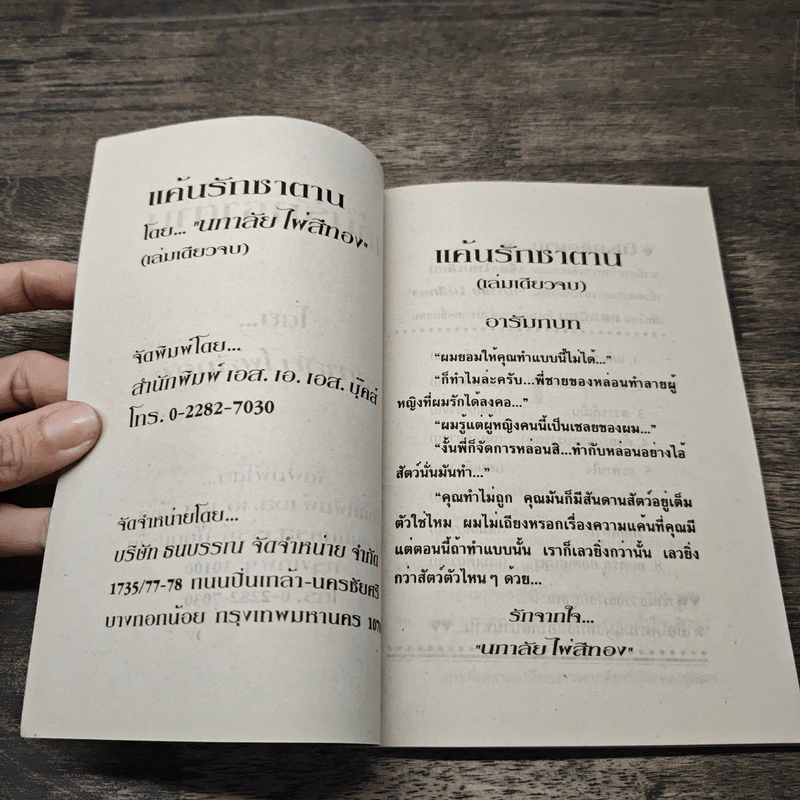 แค้นรักซาตาน
โดย... "นภาลัย ไผ่สีทอง"
(เล่มเดียวจบ)
จัดพิมพ์โดย...
สำนักพิมพ์ เอส. เอ. เอส. บุ๊คส์
โทร. 0-2282-7030
จัดจำหน่ายโดย...
บริษัท ธนบรรณ จัดจำหน่าย จำกัด
1735/77-78 ถนนปิ่นเกล้า-นครชัยศรี
บางกอกน้อย กรุงเทพมหานคร
แค้นรักซาตาน
(เล่มเดียวจบ)
อารัมภบท
"ผมยอมให้คุณทำแบบนี้ไม่ได้..."
"ก็ทำไมล่ะครับ...พี่ชายของหล่อนทำลายผู้
หญิงที่ผมรักได้ลงคอ..."
"ผมรู้แต่ผู้หญิงคนนี้เป็นเชลยของผม..."
"งั้นพี่ก็จัดการหล่อนสิ...ทำกับหล่อนอย่างไอ้
สัตว์นั่นมันทำ..."
"คุณทำไม่ถูก คุณมันก็มีสันดานสัตว์อยู่เต็ม
ตัวใช่ไหม ผมไม่เถียงหรอกเรื่องความแค้นที่คุณมี
แต่ตอนนี้ถ้าทำแบบนั้น เราก็เลวยิ่งกว่านั้น เลวยิ่ง
กว่าสัตว์ตัวไหน ๆ ด้วย...
รักจากใจ...
"นภาลัย ไผ่สีทอง"